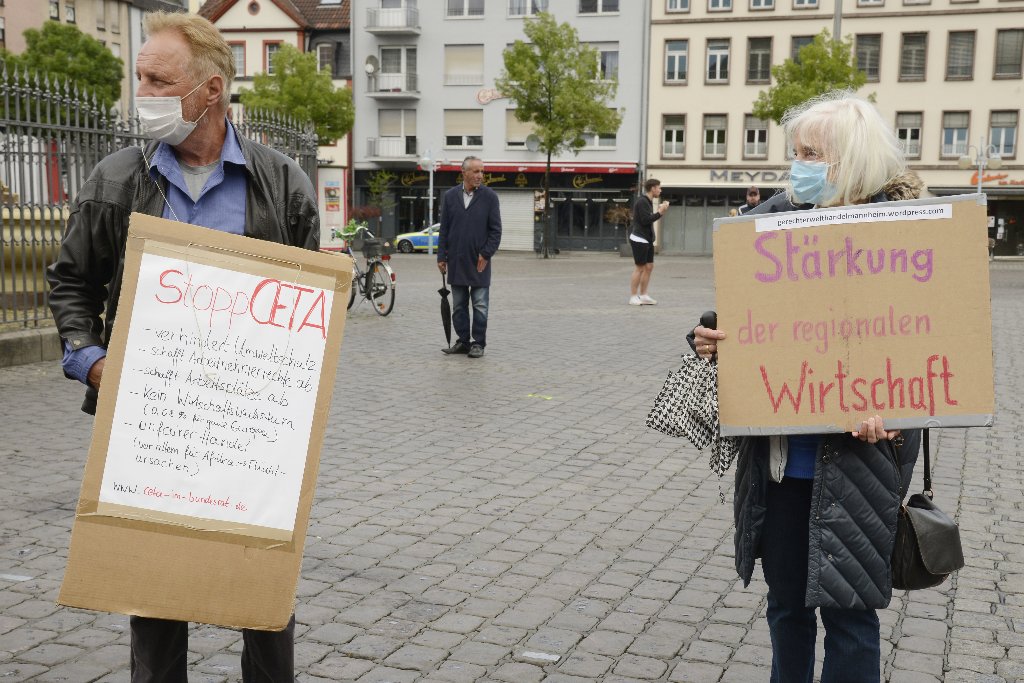 StoppCETA
- verhindert Umweltschutz
- schafft Arbeitnehmerrechte ab
- schafft Arbeitsplätze ab
- Kein Wirtschaftswachstum
- Unfairer Handel
(vor allem für Afrika → Flucht-
ursachen)
www.ceta-im-bundesrat.de
gerechterwelthandelmannheim.wordpress.com
Stärkung
der regionalen
Wirtschaft
MEYDA